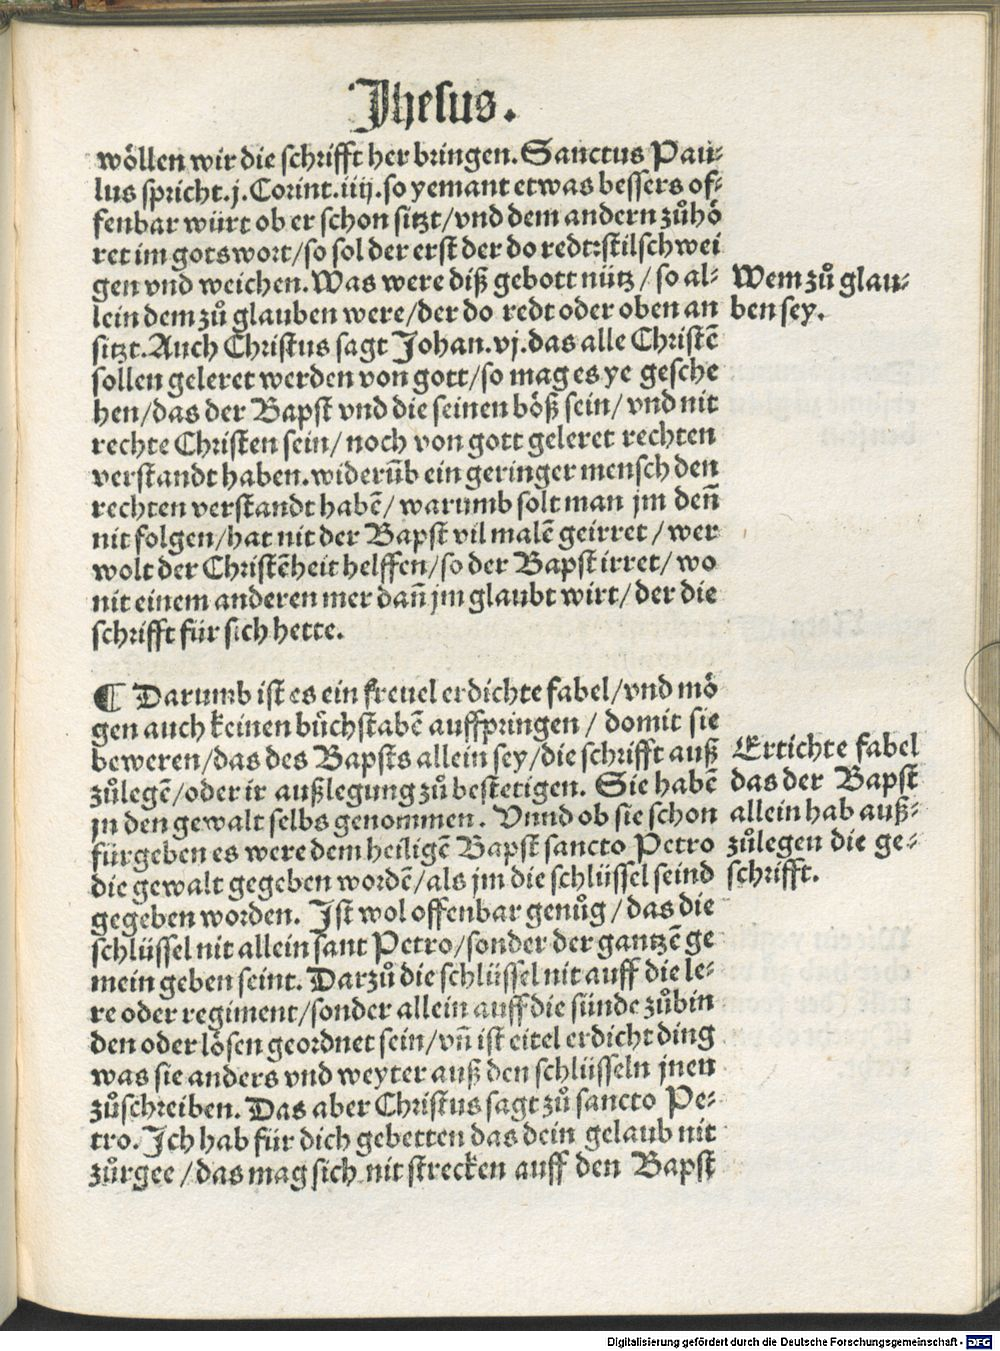 Jhesus.
wöllen wir die schrifft her bringen. Sanctus Pau-
lus spricht.j.Corint.iiij.so yemant etwas bessers of-
fenbar würt ob er schon sitzt/vnd dem andern zůhö
ret im gots wort/so sol der erst der do redt:stilschwei
gen vnd weichen.Was were diß gebott nütz/so al-
lein dem zů glauben were/der do redt oder oben an
sitzt.Auch Christus sagt Johan.vj.das alle Christē
sollen geleret werden von gott/so mag es ye gesche
hen/das der Bapst vnd die seinen böß sein/vnd nit
rechte Christen sein/noch von gott geleret rechten
verstandt haben.widerūb ein geringer mensch den
rechten verstandt habē/warumb solt man jm deñ
nit folgen/hat nit der Bapst vil malē geirret/wer
wolt der Christēheit helffen/so der Bapst irret/wo
nit einem anderen mer dañ jm glaubt wirt/der die
schrifft für sich hette.
Wem zů glau-
ben sey.
¶ Darumb ist es ein freuel erdichte fabel/vnd mö
gen auch keinen bůchstabē auffpringen/domit sie
beweren/das des Bapsts allein sey/die schrifft auß
zůlegē/oder ir außlegung zů bestetigen. Sie habē
jn den gewalt selbs genommen. Vnnd ob sie schon
fürgeben es were dem heiligē Bapst sancto Petro
die gewalt gegeben wordē/als jm die schlüssel seind
gegeben worden. Ist wol offenbar genůg/das die
schlüssel nit allein sant Petro/sonder der gantzē ge
mein geben seint. Darzů die schlüssel nit auff die le-
re oder regiment/sonder allein auff die sünde zůbin
den oder lösen geordnet sein/vñ ist eitel erdicht ding
was sie anders vnd weyter auß den schlüsseln jnen
zůschreiben. Das aber Christus sagt zů sancto Pe-
tro. Ich hab für dich gebetten das dein gelaub nit
zůrgee/das mag sich nit strecken auff den Bapst
Ertichte fabel
das der Bapst
allein hab auß-
zůlegen die ge-
schrifft.
Digitalisierung gefördert durch die Deutsche Forschungsgemeinschaft - DFG